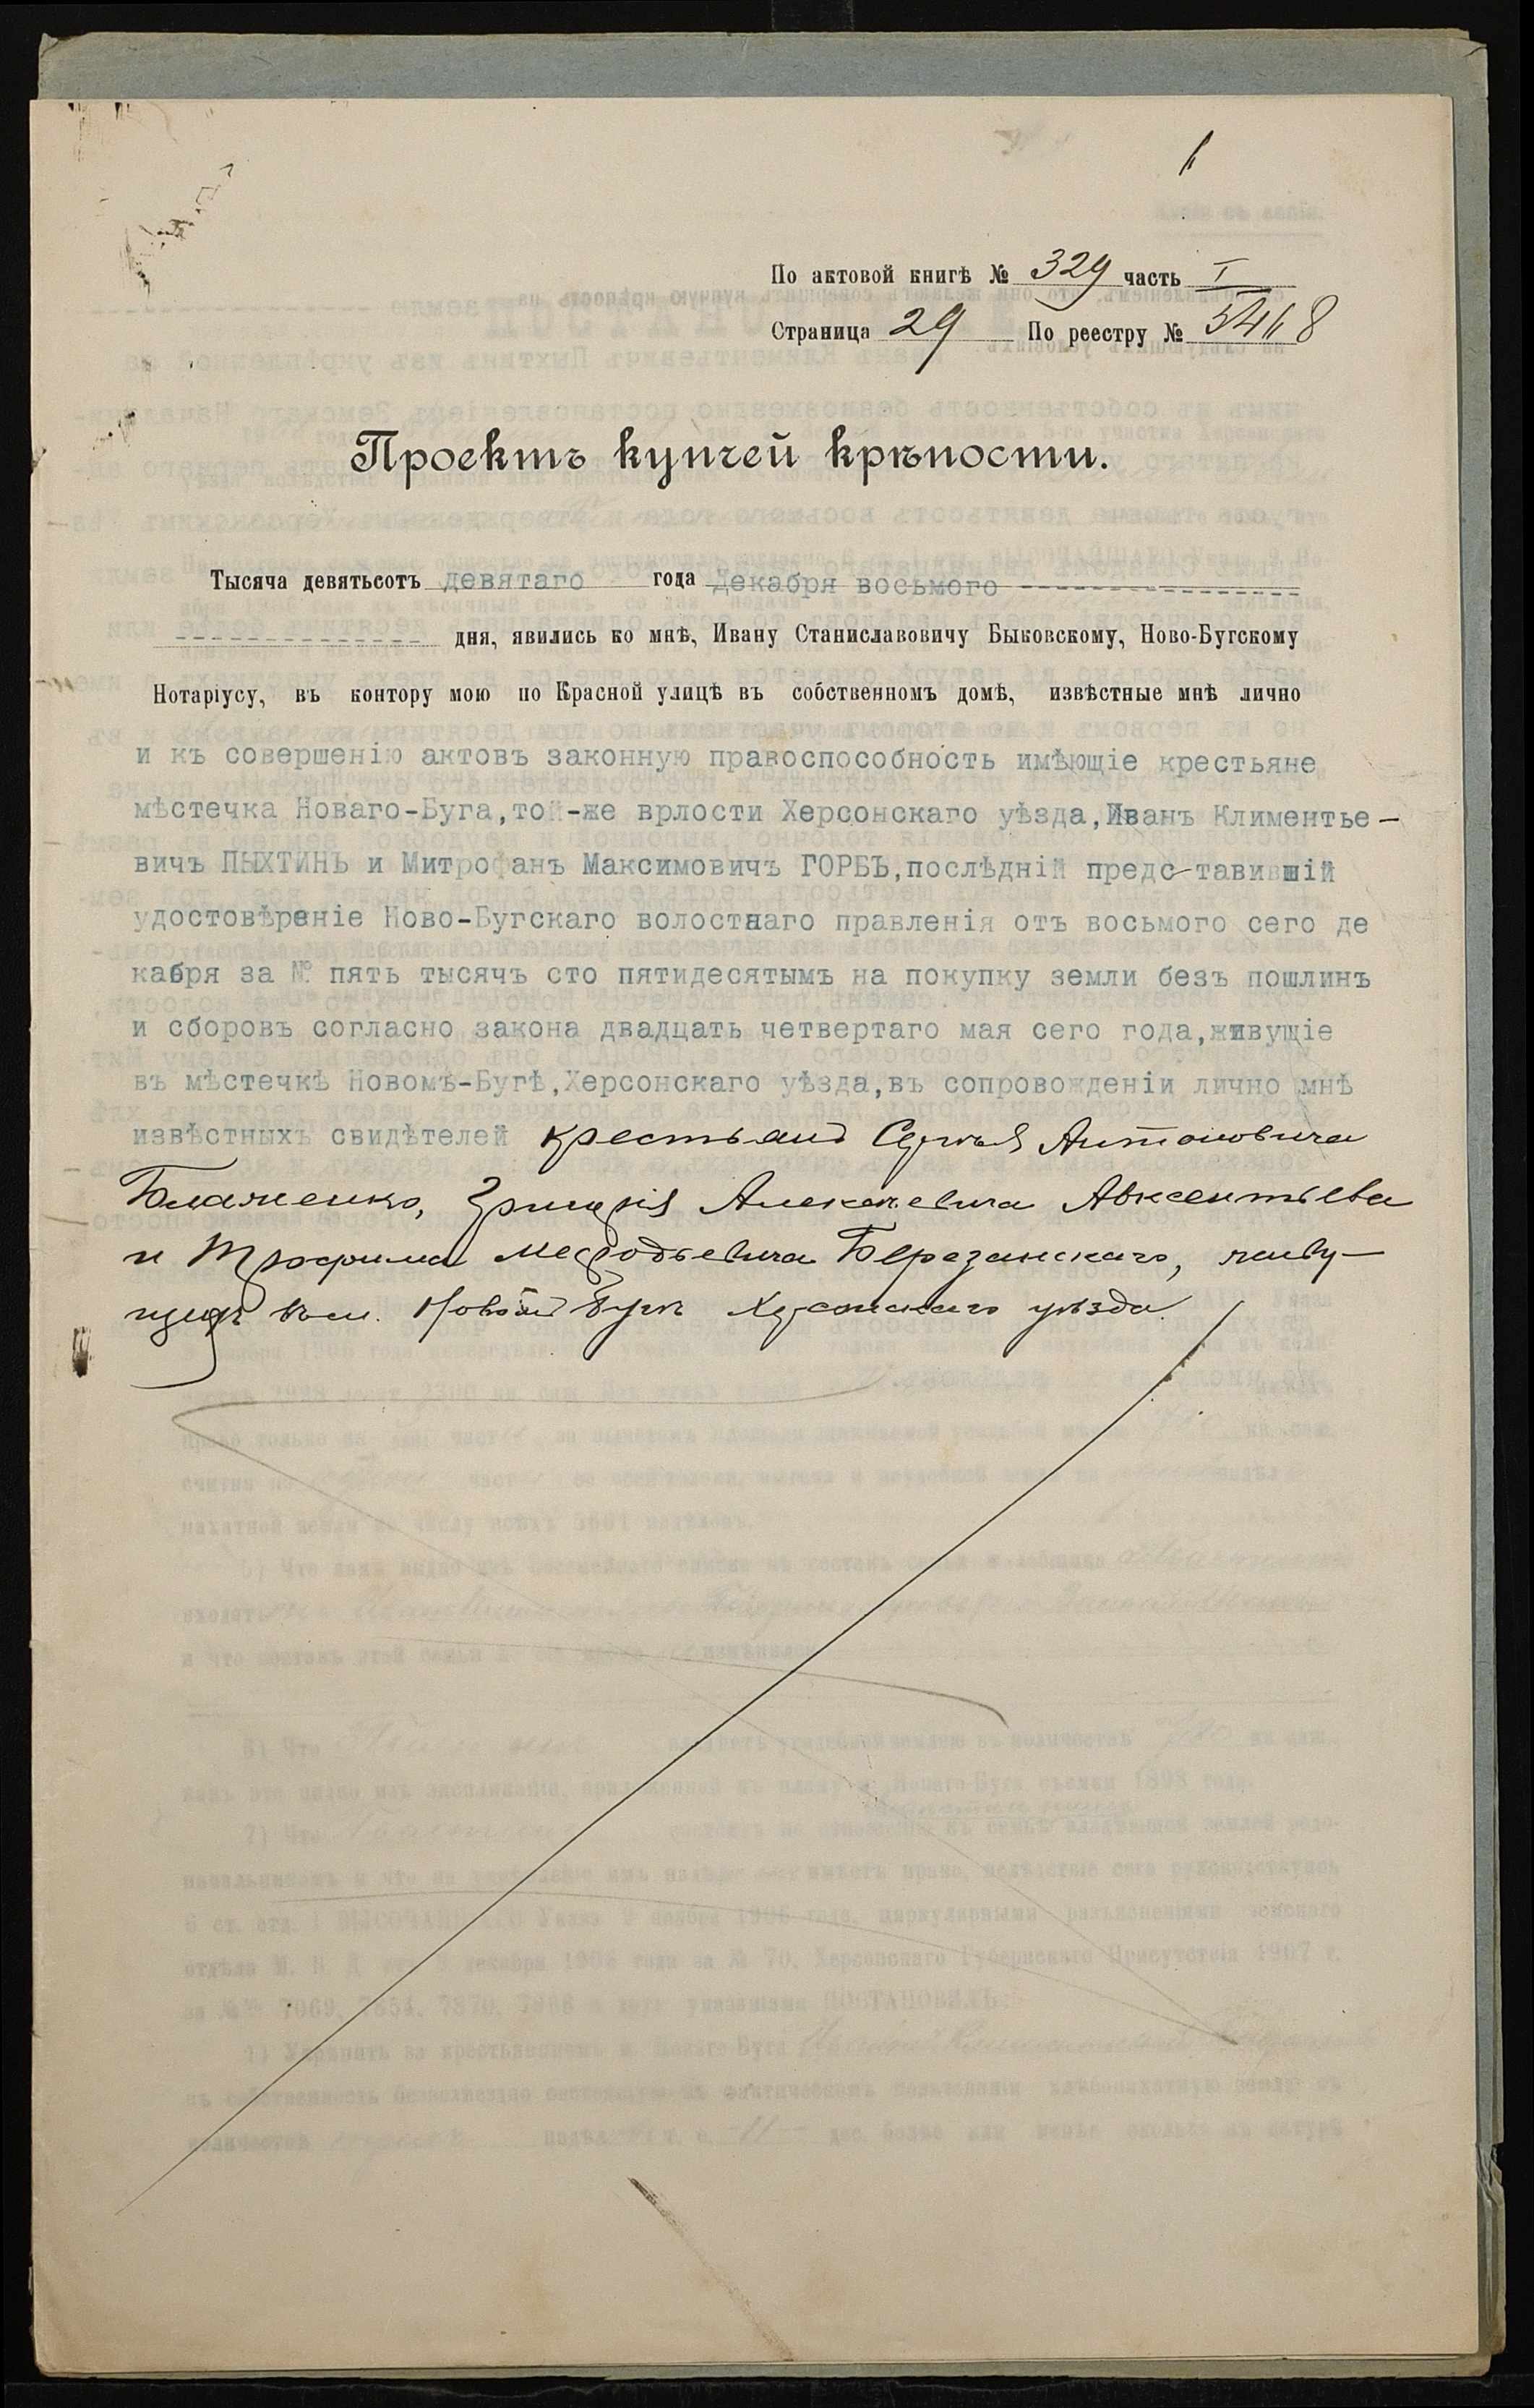 1
По актовой книгѣ № 329 часть I
Страница 29 По реестру № 5468
Проектъ купчей крѣпости.
Тысяча девятьсотъ девятаго года декабря восьмого
дня, явились ко мнѣ, Ивану Станиславовичу Быковскому, Ново-Бугскому
Нотаріусу, въ контору мою по Красной улицѣ въ собственномъ домѣ, извѣстные мнѣ лично
и къ совершенію актовъ законную правоспособность имѣющіе крестьяне
мѣстечка Новаго-Буга,той-же врлости Херсонскаго уѣзда,Иванъ Климентье-
вичъ ПЫХТИНЪ и Митрофанъ Максимовичъ ГОРБЪ,послѣдній предс-тавившій
удостовѣреніе Ново-Бугскаго волостнаго правленія отъ восьмого сего де
кабря за № пять тысячъ сто пятидесятымъ на покупку земли безъ пошлинъ
и сборовъ согласно закона двадцать четвертаго мая сего года,живущіе
въ мѣстечкѣ Новомъ-Бугѣ,Херсонскаго уѣзда,въ сопровожденіи лично мнѣ
извѣстныхъ свидѣтелей крестьянъ Сергѣя Антоновича
Блаженко, Григорія Алексѣевича Авксентьева
и Трофима Мефодьевича Березанскаго, живу-
щихъ въ м. Новомъ Бугѣ Херсонскаго уѣзда